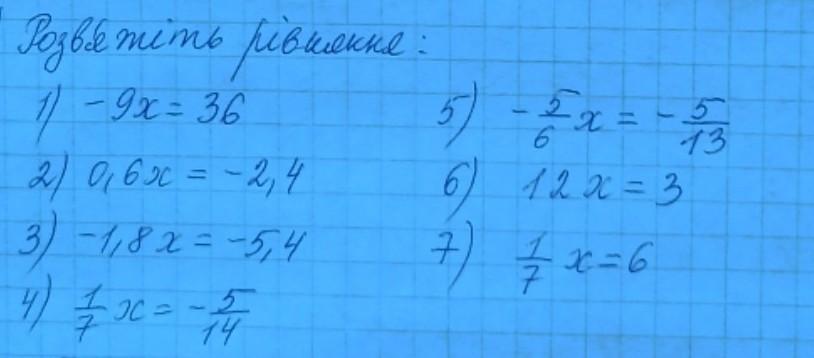 Розв'яжіть рівняння:
1) -9x = 36
2) 0,6x = -2,4
3) -1,8x = -5,4
4) 1/7 x = - 5/14
5) - 5/6 x = - 5/13
6) 12x = 3
7) 1/7 x = 6